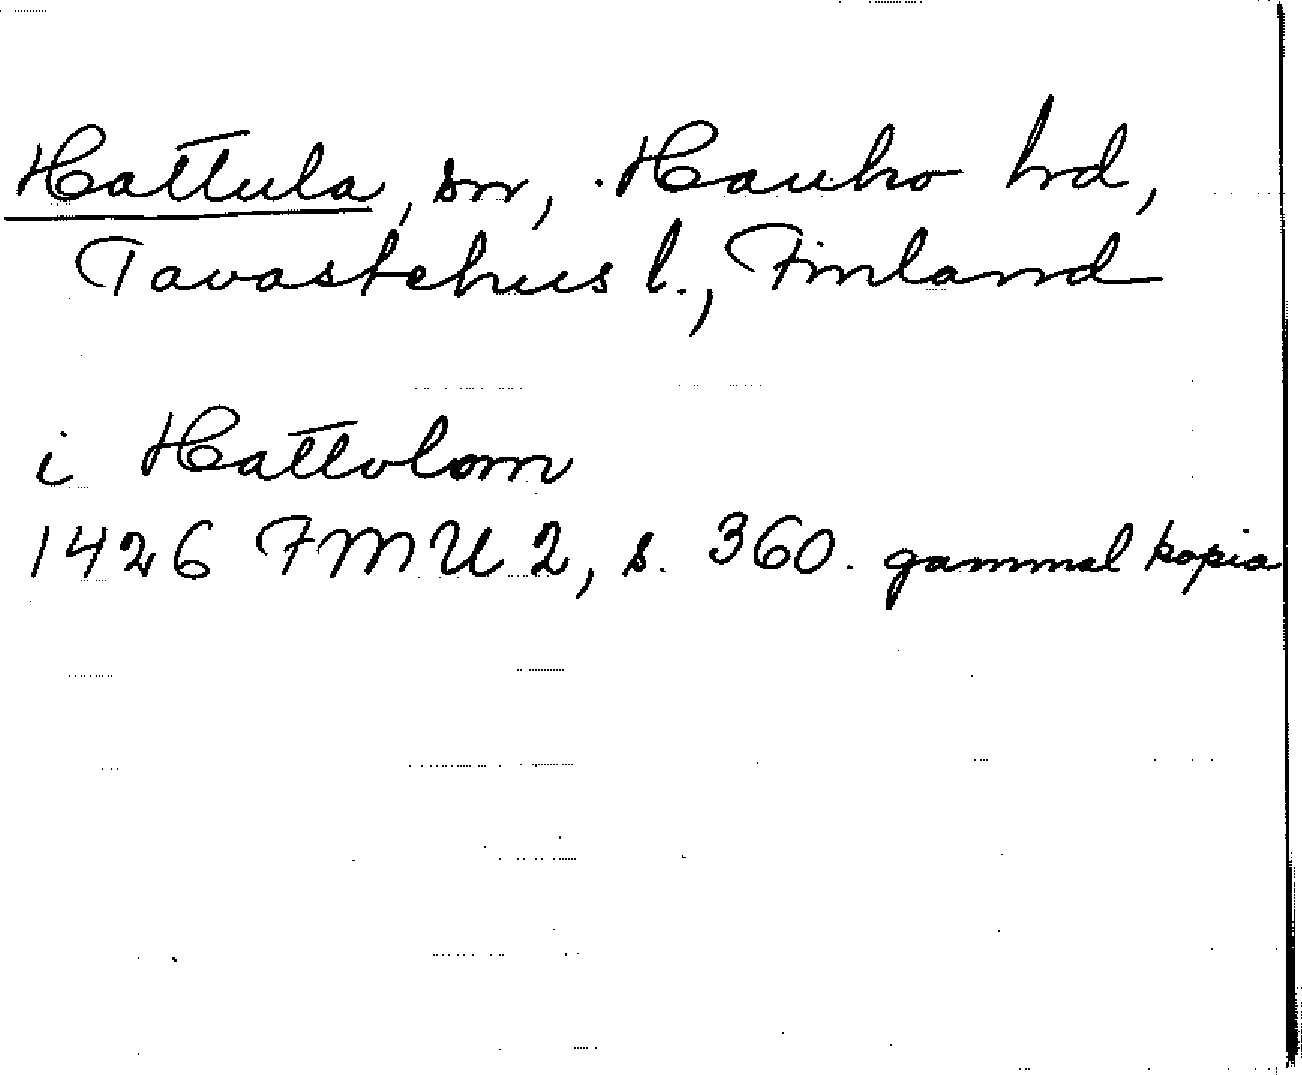 Hattula, sn, Hauho hd,
Tavastehus l., Finland
i Hattolom
1426 FMU 2, s. 360. gammal kopia